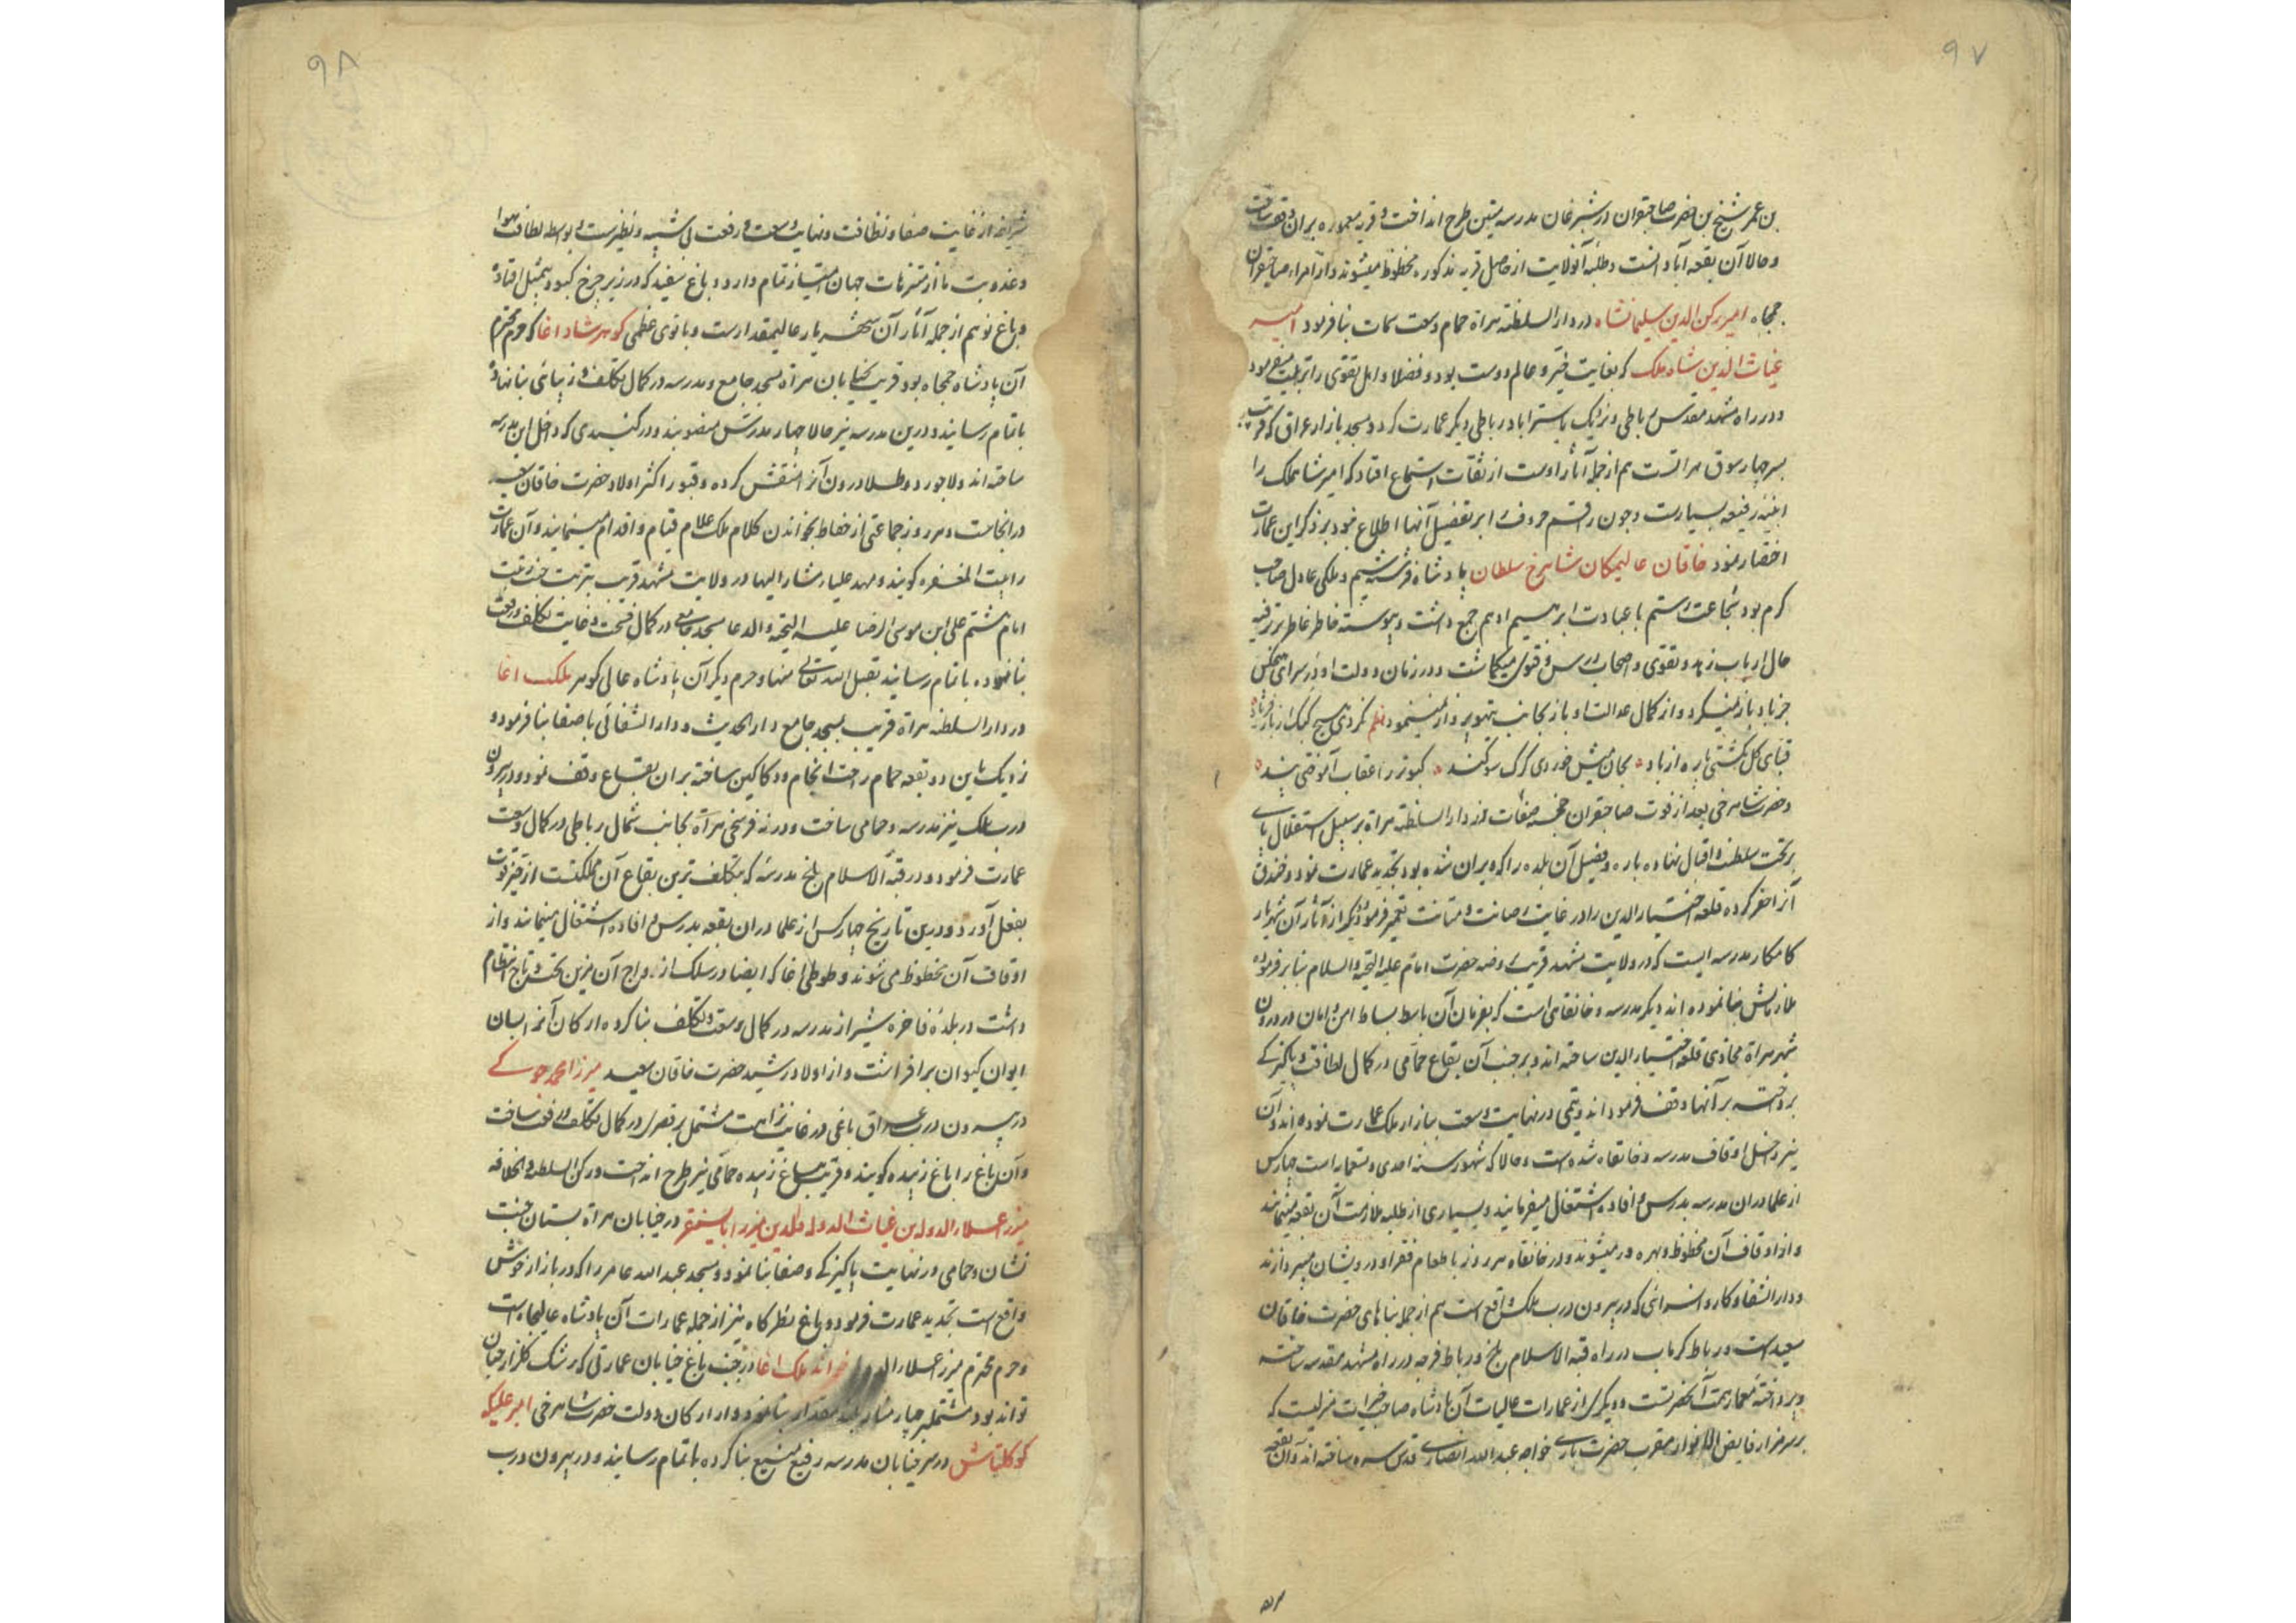 ۹۷
بن عمر شیخ بن حضرت صاحبقران در شبرغان مدرسه متین طرح انداخت و قریه معموره بران وقف ساخت
و حالا آن بقعه آبادانست و طلبه آنولایت از حاصل قریه مذکوره محظوظ میشوند و از امراء صاحبقران
جمجاه امیر رکن الدین سلیمانشاه در دار السلطنه هراة حمام وسعت سمات بنا فرمود امیر
غیاث الدین شاه ملک که بغایت خیر و عالم دوست بود و فضلا و اهل تقوی را تربیت میفرمود
و در راه مشهد مقدس رباطی و نزدیک باستراباد رباطی دیگر عمارت کرد و مسجد بازار عراق که قریب
بسر چهار سوق هراتست هم از جمله آثار اوست از ثقات استماع افتاد که امیر شاهملک را
ابنیه رفیعه بسیارست و چون راقم حروف را بر تفضیل آنها اطلاع نبود بر ذکر این عمارت
اختصار نمود خاقان عالیمکان شاهرخ سلطان پادشاه فرشته شیم و ملکی عادل صاحب
کرم بود شجاعت رستم با عبادت ابرهیم ادهم جمع داشت و پیوسته خاطر عاطر بر ترفیه
حال ارباب زهد و تقوی و اصحاب درس و فتوی میگماشت و در زمان دولت او در سرای هیچکس
جز باد باز نمیکرد و از کمال عدالت او باز بجانب تیهو پرواز نمینمود نظم نکردی هیچ کبک از باز فریاد
قبای گل نگشتی پاره از باد بجان میش خوردی گرگ سوگند کبوتر را عقاب آموختی پند
و حضرت شاهرخی بعد از فوت صاحبقران خجسته صفات در دار السلطنه هراة بر سبیل استقلال پای
بر تخت سلطنت و اقبال نهاده باره و فصیل آن بلده را که ویران شده بود تجدید عمارت نمود و خندق
آنرا حفر کرده قلعه اختیار الدین را در غایت رصانت و متانت تعمیر فرمود دیگر از آثار آن شهریار
کامکار مدرسه ایست که در ولایت مشهد قریب بروضه حضرت امام علیه التحیه و السلام بنا بر فرموده
ملازمانش بنا نموده اند دیگر مدرسه و خانقاهی است که بفرمان آن باسط بساط امن و امان در درون
شهر هراة محاذی قلعه اختیار الدین ساخته اند و بر جنب آن بقاع حمامی در کمال لطافت و پاکیزگی
پرداخته بر آنها وقف فرموده اند و تیمی در نهایت وسعت ببازار ملک عمارت نموده اند و آن
نیز داخل اوقاف مدرسه و خانقاه شده است و حالا که شهور سنه احدی و تسعمایه است چهار کس
از علما در ان مدرسه بدرس و افاده اشتغال میفرمایند و بسیاری از طلبه ملازمت آن بقعه مینمایند
و از اوقاف آن محظوظ و بهره ور میشوند و در خانقاه هر روز باطعام فقرا و درویشان میپردازند
و دار الشفا و کاروانسرائی که در بیرون درب ملک واقع است هم از جمله بناهای حضرت خاقان
سعید است و رباط کرماب در راه قبة الاسلام بلخ و رباط فرجه در راه مشهد مقدسه ساخته
و پرداخته معمار همت آنحضرتست و دیگری از عمارات عالیات آن پادشاه صاحب خیرات منزلیست که
بر سر مزار فایض الانوار مقرب حضرت باری خواجه عبد الله انصاری قدس سره ساخته اند و آن بقعه
۹۸
شریفه از غایت صفا و نظافت و نهایت وسعت و رفعت بی شبیه و نظیرست و بواسطه لطافت هوا
و عذوبت ما از متنزهات جهان امتیاز تمام دارد و باغ سفید که در زیر چرخ کبود بیمثل افتاده
و باغ نو هم از جمله آثار آن شهریار عالیمقدارست و بانوی عظمی کوهرشاد اغا که حرم محترم
آن پادشاه جمجاه بود قریب بخیابان هراة مسجد جامع و مدرسه در کمال تکلف و زیبائی بنا نهاده
باتمام رسانید و درین مدرسه نیز حالا چهار مدرس منصوبند و در گنبدی که داخل این مدرسه
ساخته اند و لاجورد و طلا درون آنرا منقش کرده و قبور اکثر اولاد حضرت خاقان سعید
در انجاست و هر روز جماعتی از حفاظ بخواندن کلام ملک علام قیام و اقدام مینمایند و آن عمارت
را بیت المغفره گویند و مهد علیا مشار الیها در ولایت مشهد قریب بتربت جنت رتبت
امام هشتم علی ابن موسی الرضا علیه التحیة و الدعا مسجد جامعی در کمال فسحت و غایت تکلف و رفعت
بنا نموده باتمام رسانید تقبل الله تعالی منها و حرم دیگر آن پادشاه عالی گوهر ملکت اغا
در دار السلطنه هراة قریب بمسجد جامع دار الحدیث و دار الشفائی باصفا بنا فرمود و
نزدیک باین دو بقعه حمام راحت انجام و دکاکین ساخته بر ان بقاع وقف نمود و در بیرون
درب ملک نیز مدرسه و حمامی ساخت و در نه فرسخی هراة بجانب شمال رباطی در کمال وسعت
عمارت فرمود و در قبة الاسلام بلخ مدرسه که بتکلف ترین بقاع آن مملکتست از قوت
بفعل آورد و درین تاریخ چهار کس از علما در ان بقعه بدرس و افاده اشتغال مینمایند و از
اوقاف آن محظوظ می شوند و طوطی اغا که ایضا در سلک ازواج آن مزین تخت و تاج انتظام
داشت در بلده فاخره شیراز مدرسه در کمال وسعت و تکلف بنا کرده ارکان آنرا بسان
ایوان کیوان برافراشت و از اولاد رشید حضرت خاقان سعید میرزا محمد جوکی
در بیرون درب عراق باغی در غایت نزاهت مشتمل بر قصری در کمال تکلف ساخت
و آن باغ را باغ زبیده گویند و قریب بباغ زبیده حمامی نیز طرح انداخت و رکن السلطنه و الخلافه
میرزا علاء الدوله بن غیاث الدوله و الدین میرزا بایسنغر در خیابان هراة بستان جنت
نشان و حمامی در نهایت پاکیزگی و صفا بنا نمود و مسجد عبد الله عامر را که در بازار خوش
واقع است تجدید عمارت فرمود و باغ نظرگاه نیز از جمله عمارات آن پادشاه عالیجاه است
و حرم محترم میرزا علاء الدوله اغا در جنب باغ خیابان عمارتی که رشک گلزار جنان
تواند بود مشتمل بر چهار منار بنا نمود و از ارکان دولت حضرت شاهرخی امیر علیکه
کوکلتاش در سر خیابان مدرسه رفیع منیع بنا کرده باتمام رسانید و در بیرون درب